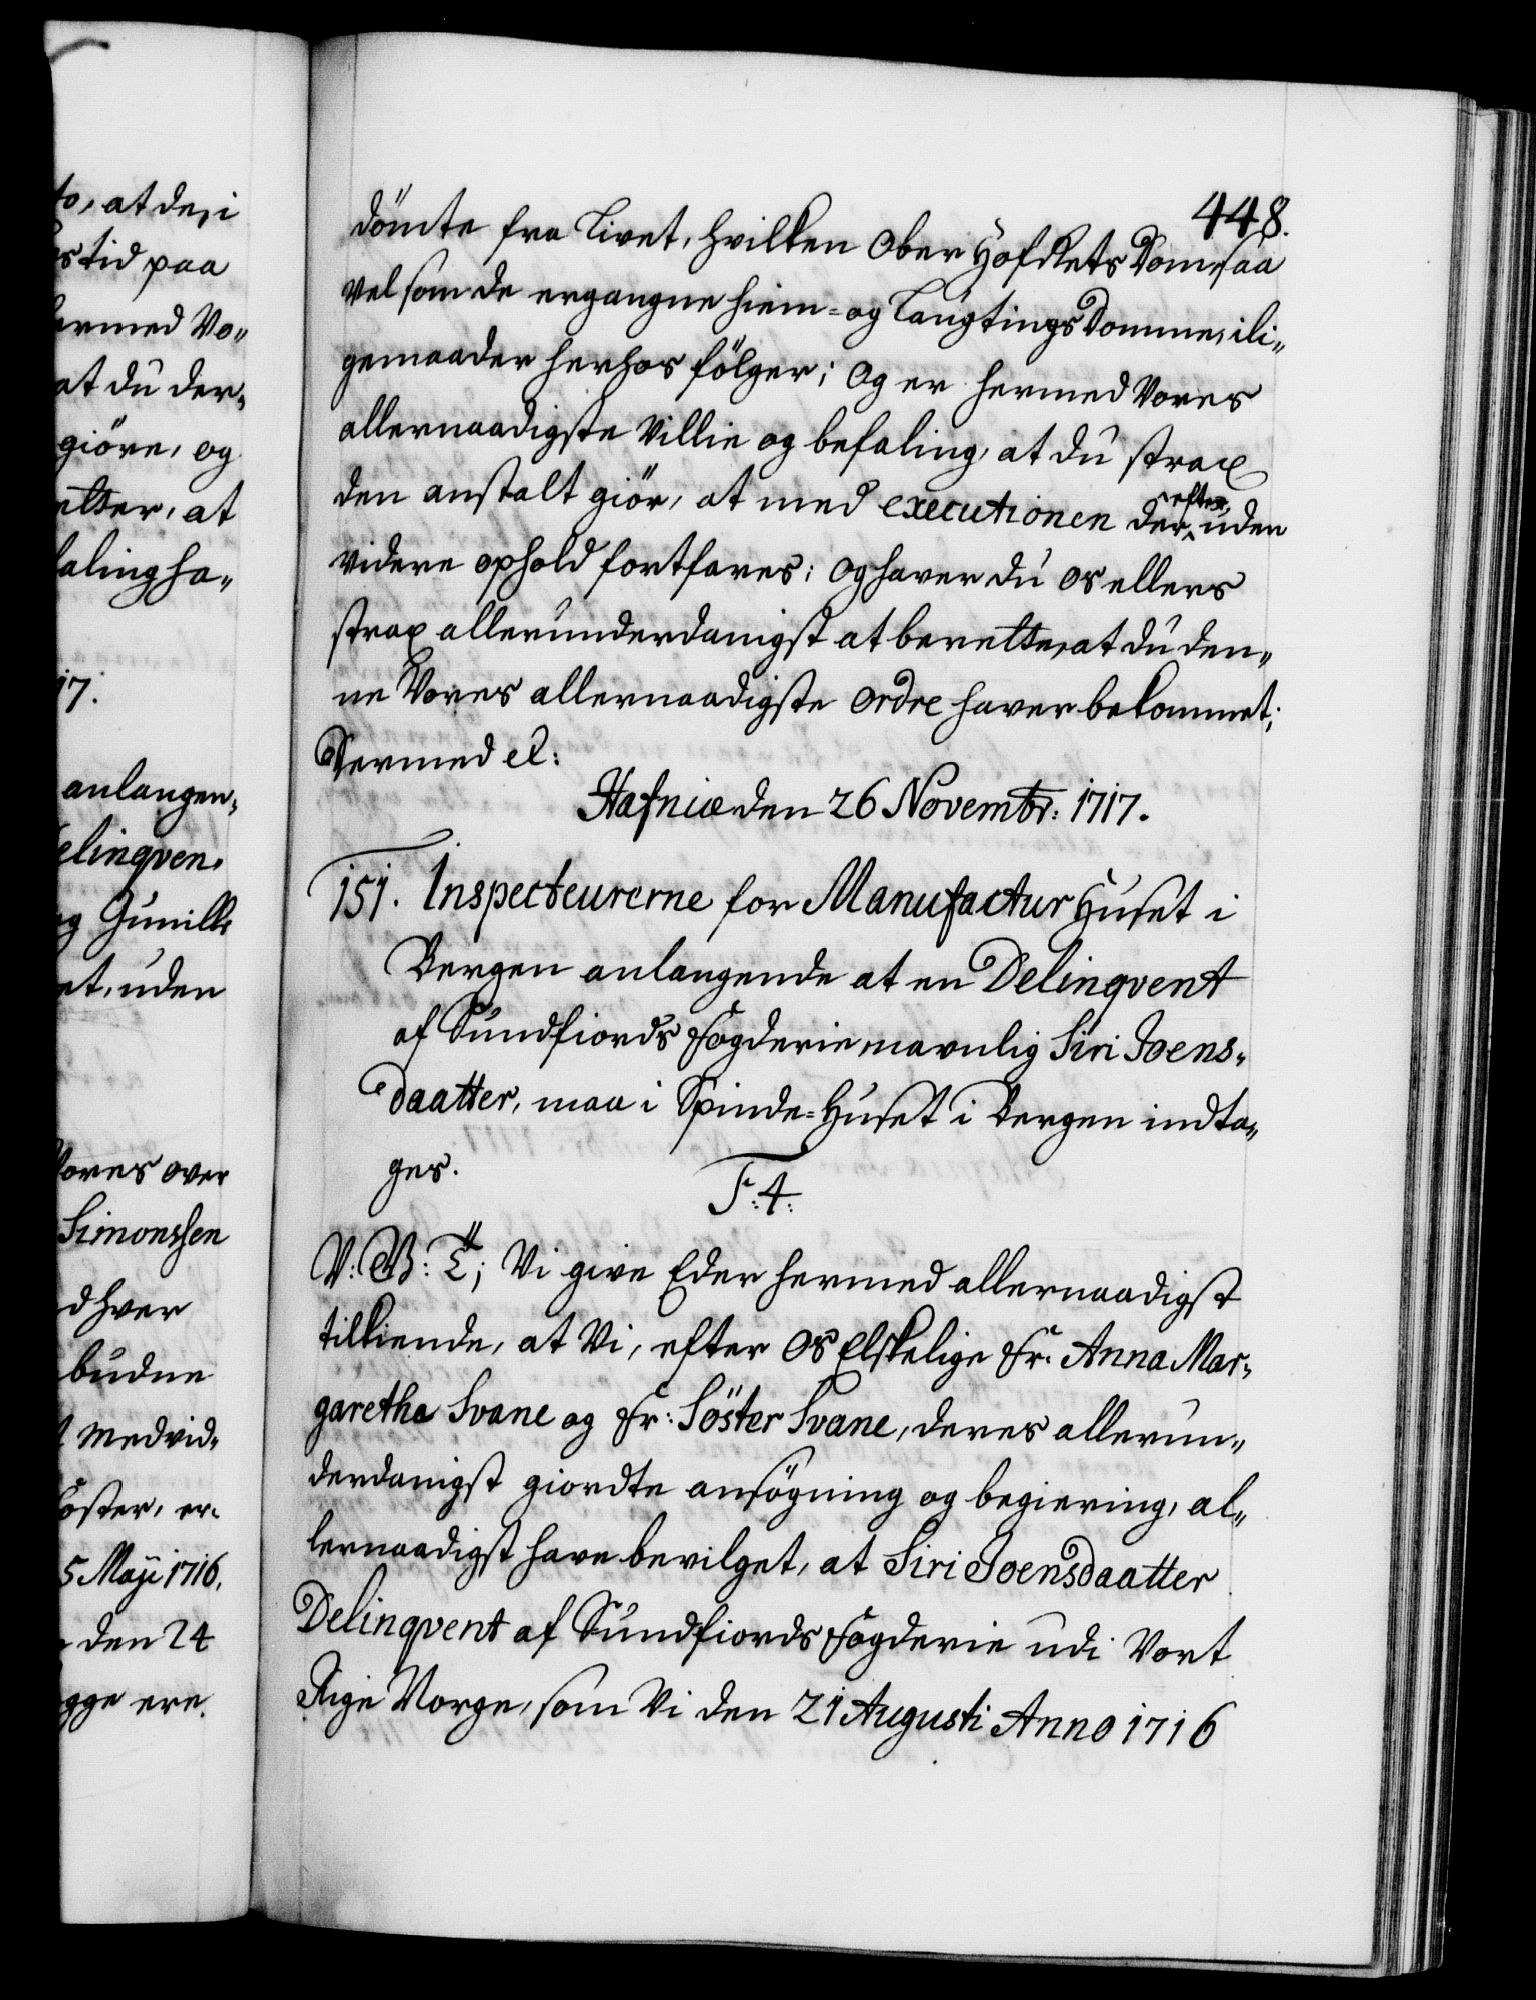 to, at de, i
s tid paa
ermed Vo„
at du der„
giöre, og
etter, at
faling ha„
17.
anlangen„
elinqven„
og Gunilde
et, uden
Vores over
Simonssen
d hver
budne
medvid„
öster, er„
5 Maÿi 1716.
den 24
gge ere.
448.
dömte fra Livet, hvilken Ober HofRets Dom, saa
vel som de ergangne hiem= og LaugtingsDomme, ili„
gemaader herhos fölger; Og er hermed Vores
allernaadigste Villie og befaling, at du strax
den anstalt giör, at med executionen der efter, uden
videre ophold fortfares; og haver du os ellers
strax allerunderdanigst at berette, at du den„
ne Vores allernaadigste ordre haver bekommet;
Dermed el:
Hafniæ den 26 Novembr: 1717.
151. Inspecteurerne for Manufactur Huset i
Bergen anlangende at en Delinqvent
af Sundfiords Fogderie, navnlig Siri Joens„
daatter, maa i Spinde=Huset i Bergen indta„
ges.
F: 4:
V: G: T; Vi give Eder hermed allernaadigst
tilkiende, at Vi, efter Os Elskelige Fr: Anna Mar„
garetha Svane og Fr: Söster Svane, deres allerun„
derdanigst giordte ansögning og begiering, al„
lernaadigst have bevilget, at Siri Joensdaatter
Delinqvent af Sundfiords Fogderie udi Vort
Rige Norge, som Vi den 21 Augusti Anno 1716